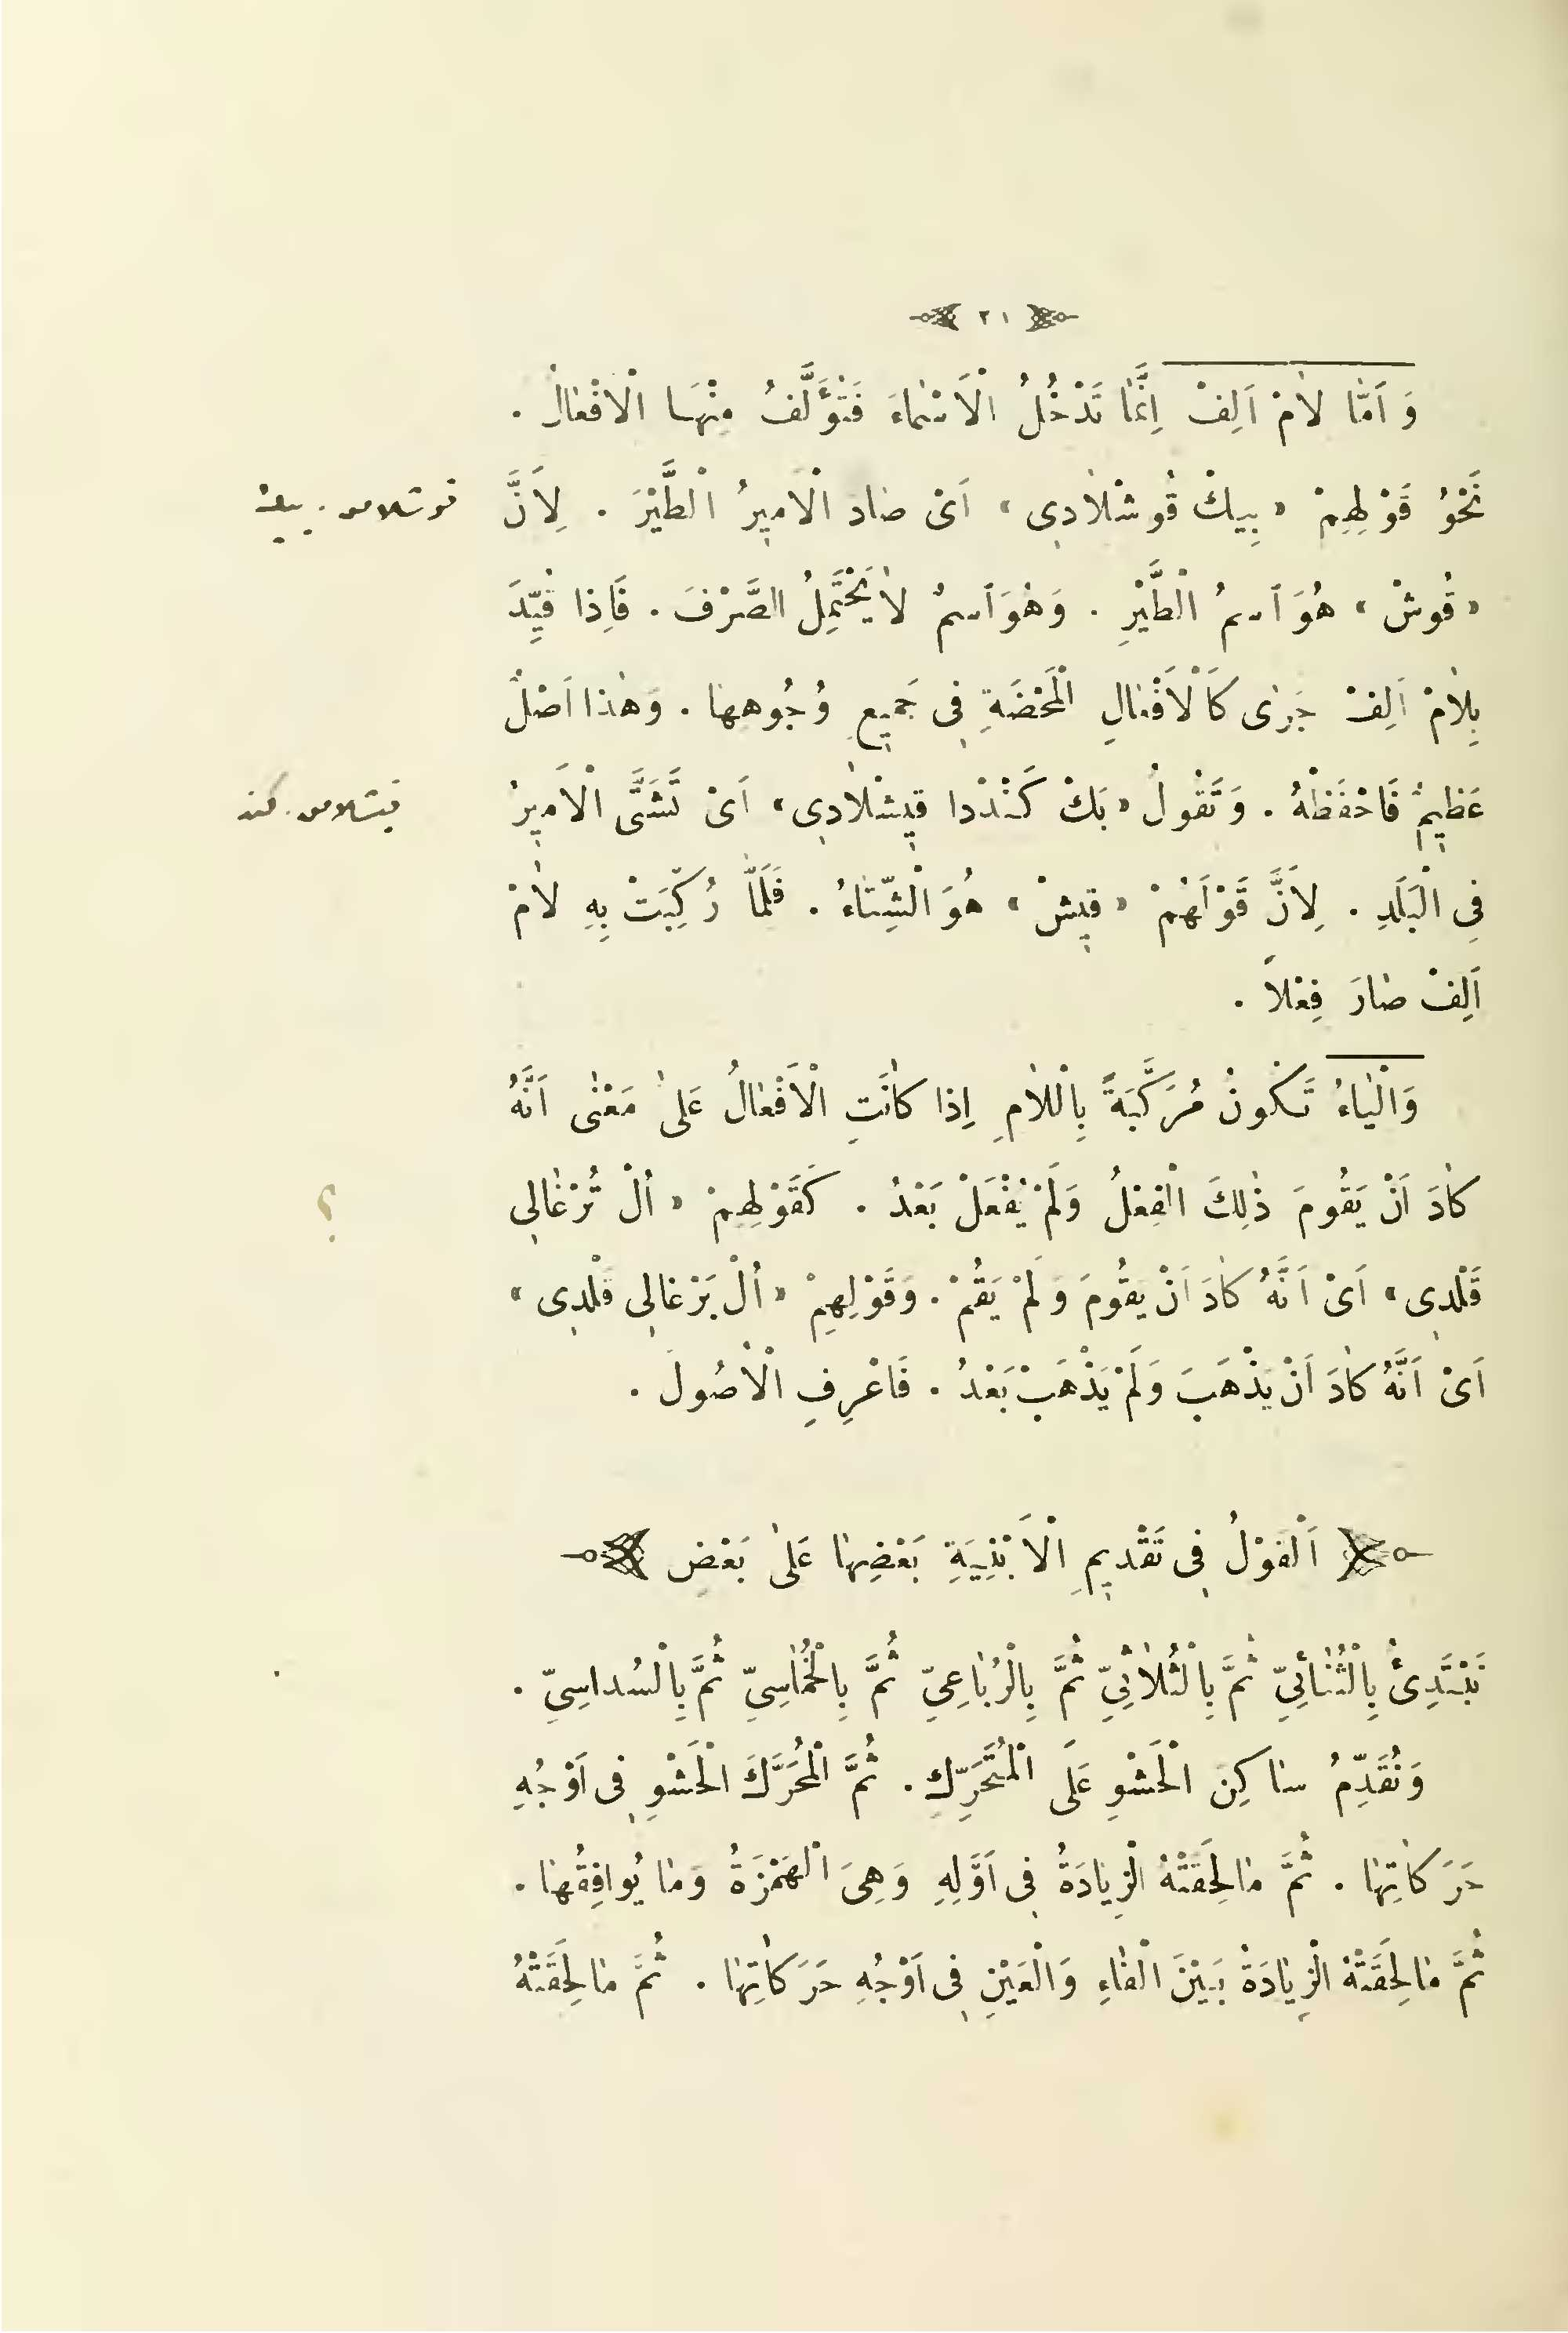 ٢١
وَ اَمّٰا لاٰمْ اَلِفْ اِنَّمٰا تَدْخُلُ الْاَسْمٰاءَ فَتُؤَلَّفُ مِنْهَا الْاَفْعٰالُ .
نَحْوُ قَوْلِهِمْ « بِيكْ قُوشْلاٰدِى » اَىْ صٰادَ الْاَمِيرُ الْطَّيْرَ . لِاَنَّ
قوشلامق . بيك
« قُوشْ » هُوَ اَسمُ الْطَّيْرِ . وَهُوَ اَسمٌ لاٰ يَحْتَمِلُ الصَّرْفَ . فَاِذٰا قُيِّدَ
بِلاٰمْ اَلِفْ جَرٰى كَالْاَفْعٰالِ الْمَحْضَةِ فِى جَمِيعِ وُجُوهِهٰا . وَهٰذٰا اَصْلٌ
عَظِيمٌ فَاحْفَظْهُ . وَتَقُولُ « بَكْ كَنْدْدٰا قِيشْلاٰدِى » اَىْ تَشَتَّى الْاَمِيرُ
قيشلامق . كند
فِى الْبَلَدِ . لِاَنَّ قَوْلَهُمْ « قِيشْ » هُوَ الْشِّتٰاءُ . فَلَمّٰا رُكِّبَتْ بِهِ لاٰمْ
اَلِفْ صٰارَ فِعْلاً .
وَالْيٰاءُ تَكُونُ مُرَكَّبَةً بِالْلاٰمِ اِذٰا كٰانَتِ الْاَفْعٰالُ عَلىٰ مَعْنٰى اَنَّهُ
كٰادَ اَنْ يَقُومَ ذٰلِكَ الْفِعْلُ وَلَمْ يُفْعَلْ بَعْدُ . كَقَوْلِهِمْ « اُلْ تُرْغٰالِى
؟
قَلْدِى » اَىْ اَنَّهُ كٰادَ اَنْ يَقُومَ وَلَمْ يَقُمْ . وَقَوْلِهِمْ « اُلْ بَرْغٰالِى قَلْدِى »
اَىْ اَنَّهُ كٰادَ اَنْ يَذْهَبَ وَلَمْ يَذْهَبْ بَعْدُ . فَاعْرِفِ الْاُصُولَ .
اَلْقَوْلُ فِى تَقْدِيمِ الْاَبْنِيَةِ بَعْضِهٰا عَلىٰ بَعْضٍ
نَبْتَدِئُ بِالْثُنٰائِيِّ ثُمَّ بِالْثُلاٰثِيِّ ثُمَّ بِالْرُبٰاعِيِّ ثُمَّ بِالْخُمٰاسِيِّ ثُمَّ بِالْسُدٰاسِيِّ .
وَنُقَدِّمُ سٰاكِنَ الْحَشْوِ عَلَى الْمُتَحَرِّكِ . ثُمَّ الْمُحَرَّكَ الْحَشْوِ فِى اَوْجُهِ
حَرَكٰاتِهٰا . ثُمَّ مٰا لَحِقَتْهُ الْزِيٰادَةُ فِى اَوَّلِهِ وَهِىَ الْهَمْزَةُ وَمٰا يُوٰافِقُهٰا .
ثُمَّ مٰا لَحِقَتْهُ الْزِيٰادَةُ بَيْنَ الْفٰاءِ وَالْعَيْنِ فِى اَوْجُهِ حَرَكٰاتِهٰا . ثُمَّ مٰا لَحِقَتْهُ